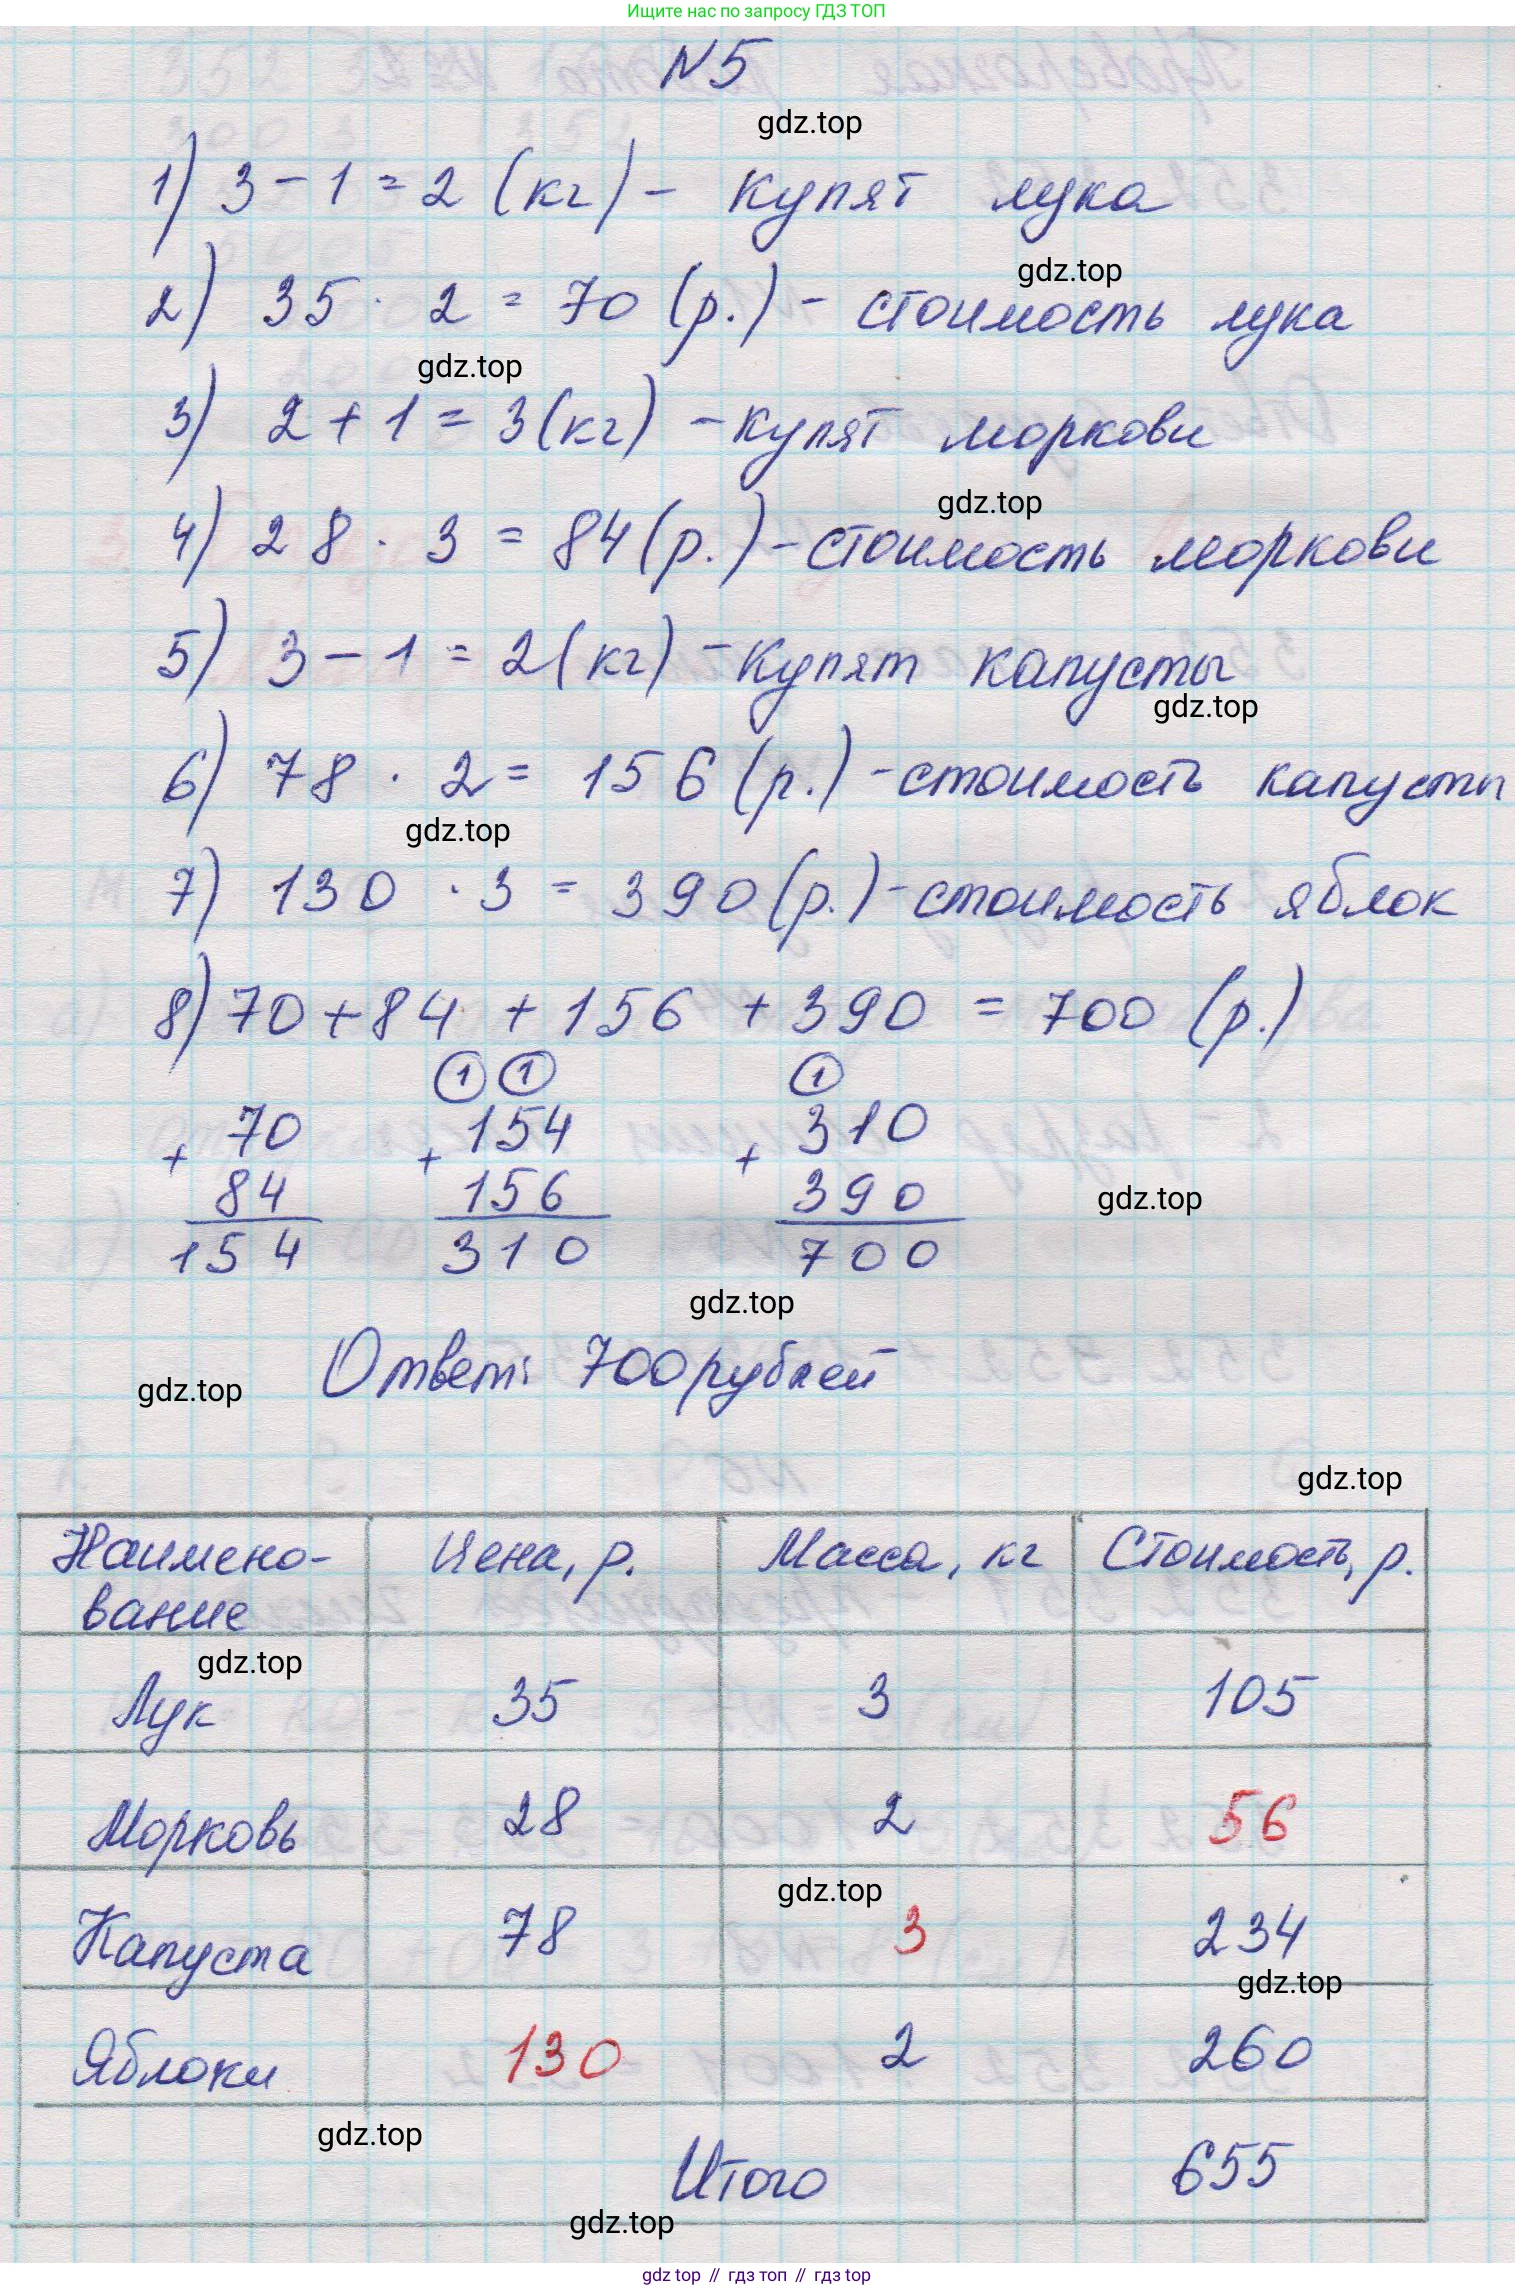 Ищите нас по запросу ГДЗ ТОП
№5
gdz.top
1) 3 - 1 = 2 (кг) - купят лука
gdz.top
2) 35 · 2 = 70 (р.) - стоимость лука
gdz.top
3) 2 + 1 = 3 (кг) - купят моркови
gdz.top
4) 28 · 3 = 84 (р.) - стоимость моркови
5) 3 - 1 = 2 (кг) - купят капусты
gdz.top
6) 78 · 2 = 156 (р.) - стоимость капусты
gdz.top
7) 130 · 3 = 390 (р.) - стоимость яблок
8) 70 + 84 + 156 + 390 = 700 (р.)
1 1 1
+ 70 + 154 + 310
84 156 390
gdz.top
154 310 700
gdz.top
Ответ: 700 рублей
gdz.top
gdz.top
Наимено- Цена, р. Масса, кг Стоимость, р.
вание
gdz.top
Лук 35 3 105
Морковь 28 2 56
gdz.top
Капуста 78 3 234
gdz.top
Яблоки 130 2 260
gdz.top
Итого 655
gdz.top
gdz top // гдз топ // гдз top